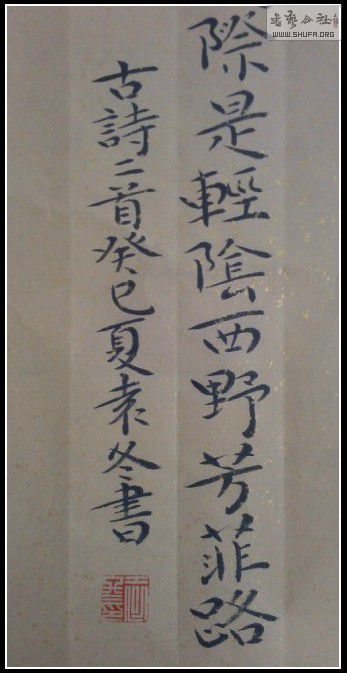 際是輕陰西野芳菲路
古詩二首癸巳夏袁冬書
WWW.SHUFA.ORG